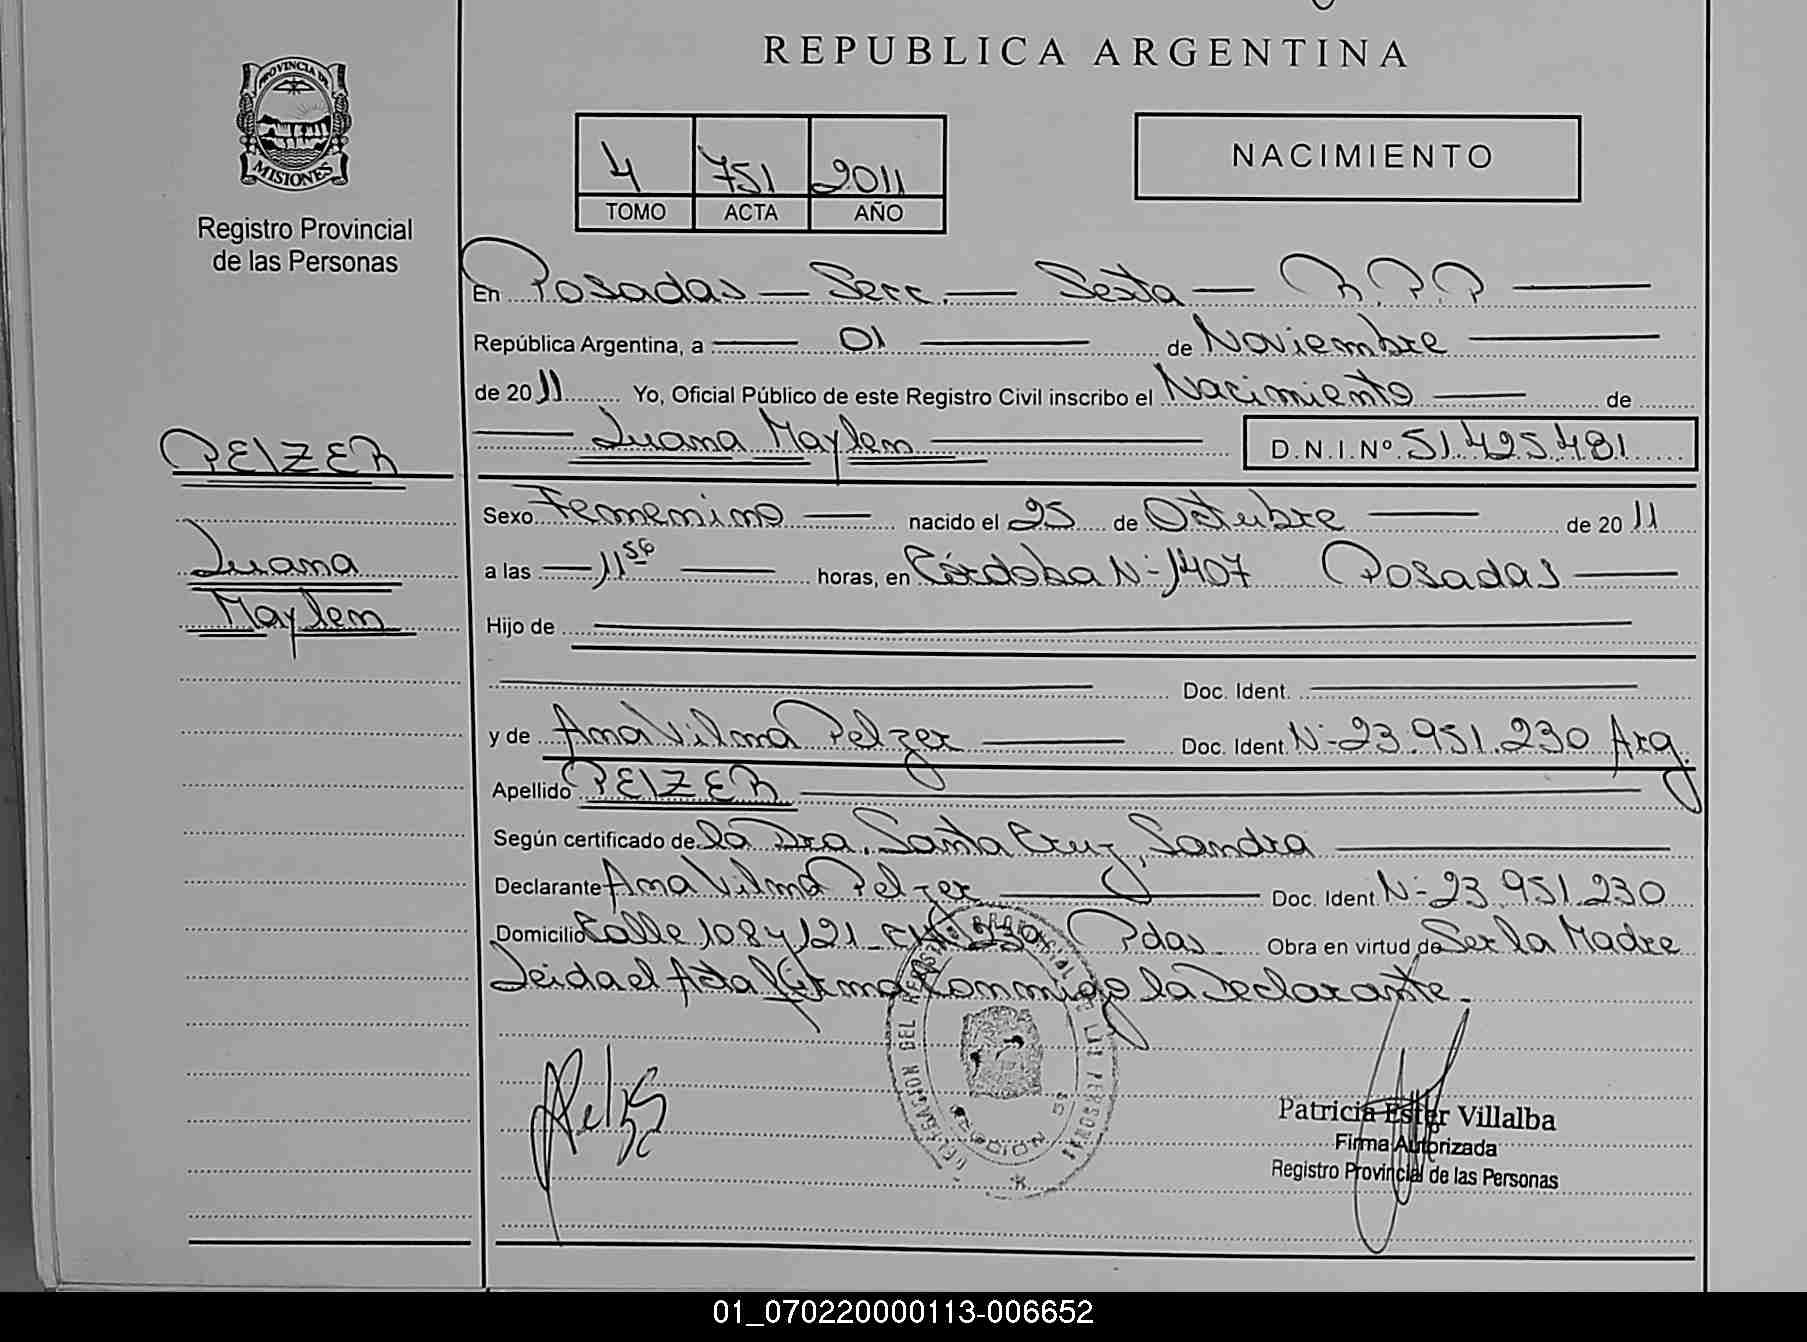 REPUBLICA ARGENTINA
PROVINCIA DE
MISIONES
Registro Provincial
de las Personas
4 751 2011
TOMO ACTA AÑO
NACIMIENTO
En Posadas — Secc. — Sexta — R.P.P —
República Argentina, a — 01 — de Noviembre —
de 2011 Yo, Oficial Público de este Registro Civil inscribo el Nacimiento — de
— Luana Maylen — D.N.I.Nº 51.425.481
PELZER
Luana
Maylen
Sexo Femenino — nacido el 25 de Octubre — de 2011
a las — 11 56 — horas, en Córdoba N- 1407 Posadas —
Hijo de —
— Doc. Ident. —
y de Ana Vilma Pelzer — Doc. Ident. N- 23.951.230 Arg.
Apellido PELZER —
Según certificado de la Dra. Santa Cruz, Sandra —
Declarante Ana Vilma Pelzer — Doc. Ident. N- 23.951.230
Domicilio Calle 108 y 121 - Pdas. Obra en virtud de Ser la Madre
Leida el Acta firma Conmigo la Declarante.
Pelzer
Patricia Ester Villalba
Firma Autorizada
Registro Provincial de las Personas
01_070220000113-006652